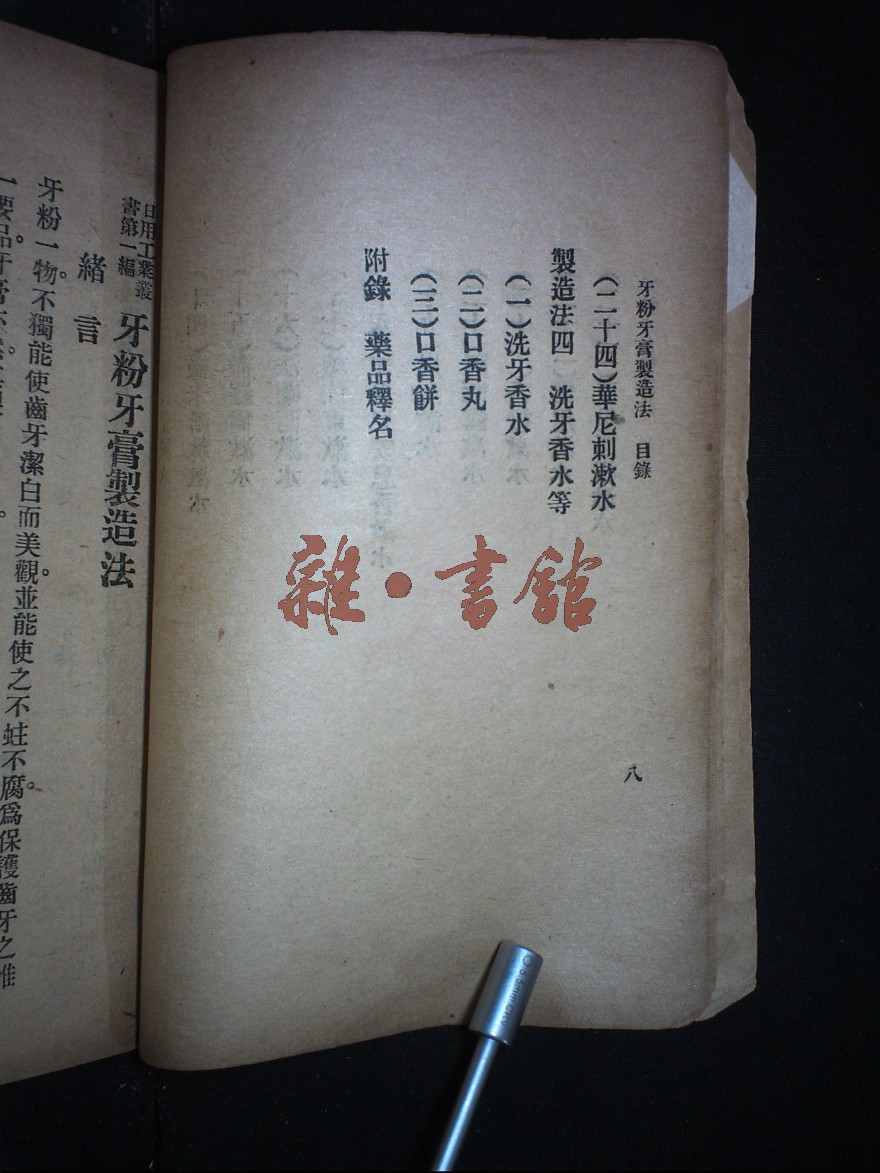 牙粉牙膏製造法　目錄
(二十四)華尼刺漱水
製造法四　洗牙香水等
(一)洗牙香水
(二)口香丸
(三)口香餅
附錄　藥品釋名
八
雜·書館
日用工業叢
書第一編
牙粉牙膏製造法
緒言
牙粉一物。不獨能使齒牙潔白而美觀。並能使之不蛀不腐。爲保護齒牙之惟
一要品。牙膏